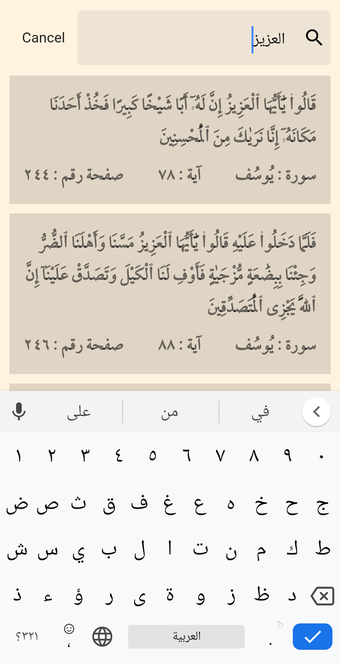 Cancel العزيز
قَالُوا۟ يَـٰٓأَيُّهَا ٱلْعَزِيزُ إِنَّ لَهُۥٓ أَبًا شَيْخًا كَبِيرًا فَخُذْ أَحَدَنَا
مَكَانَهُۥٓ إِنَّا نَرَىٰكَ مِنَ ٱلْمُحْسِنِينَ
سورة : يُوسُف آية : ٧٨ صفحة رقم : ٢٤٤
فَلَمَّا دَخَلُوا۟ عَلَيْهِ قَالُوا۟ يَـٰٓأَيُّهَا ٱلْعَزِيزُ مَسَّنَا وَأَهْلَنَا ٱلضُّرُّ
وَجِئْنَا بِبِضَـٰعَةٍ مُّزْجَىٰةٍ فَأَوْفِ لَنَا ٱلْكَيْلَ وَتَصَدَّقْ عَلَيْنَآ إِنَّ
ٱللَّهَ يَجْزِى ٱلْمُتَصَدِّقِينَ
سورة : يُوسُف آية : ٨٨ صفحة رقم : ٢٤٦
في من على
١ ٢ ٣ ٤ ٥ ٦ ٧ ٨ ٩ ٠
ض ص ث ق ف غ ع ه خ ح ج
ش س ي ب ل ا ت ن م ك ط
ذ ء ؤ ر ى ة و ز ظ د
؟٣٢١ ، العربية .